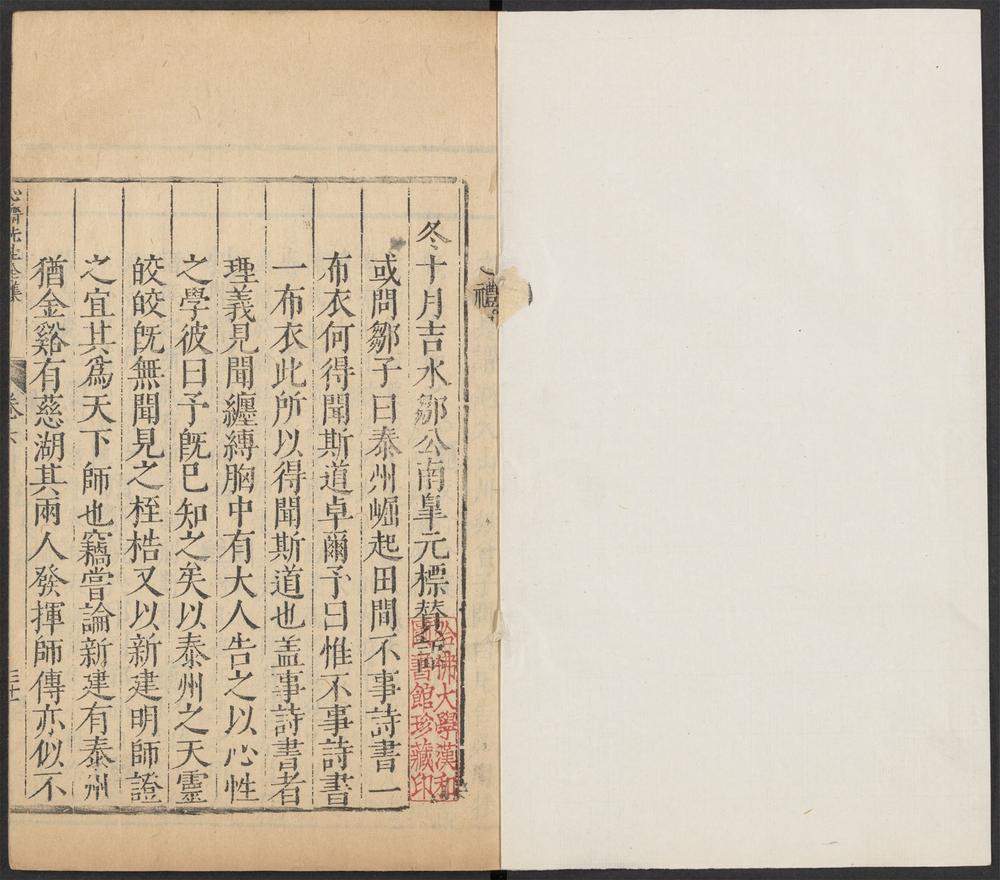 禮
冬十月吉水鄒公南臯元標贊
或問鄒子曰泰州崛起田間不事詩書一
布衣何得聞斯道卓爾予曰惟不事詩書
一布衣此所以得聞斯道也盖事詩書者
理義見聞纏縛胸中有大人告之以心性
之學彼曰予旣已知之矣以泰州之天靈
皎皎旣無聞見之桎梏又以新建明師證
之宜其爲天下師也竊嘗論新建有泰州
猶金谿有慈湖其兩人發揮師傳亦似不
心齋先生全集
卷六
哈佛大學漢和
圖書館珍藏印